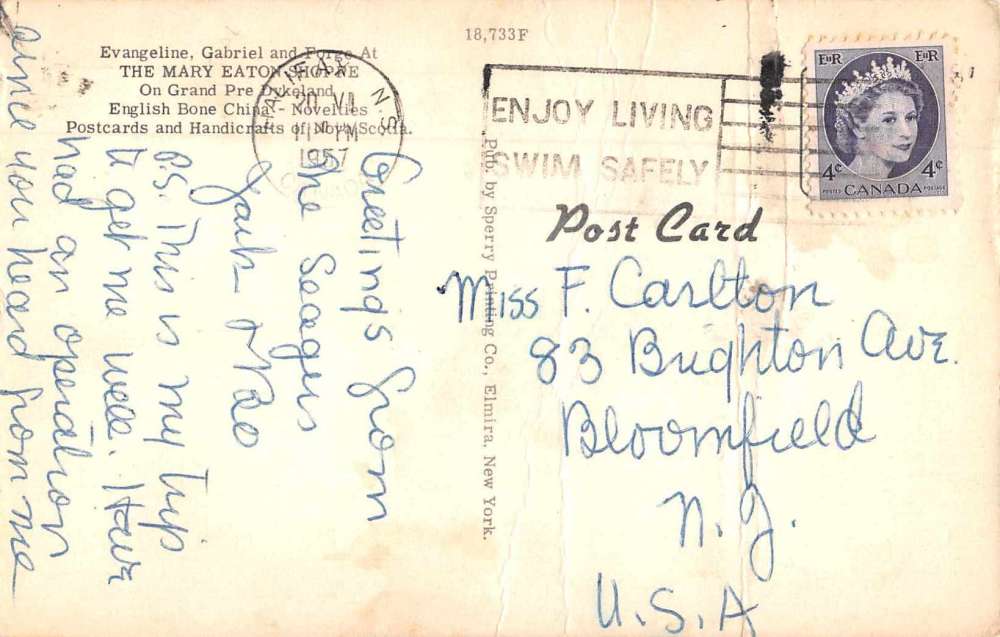 18,733F
Evangeline, Gabriel and Forge At
THE MARY EATON SHOPPE
On Grand Pre Dykeland
English Bone China - Novelties
Postcards and Handicrafts of Nova Scotia.
N.S.
20 VI
PM
1957
ENJOY LIVING
SWIM SAFELY
EIIR EIIR
4¢ 4¢
POSTES CANADA POSTAGE
Post Card
Pub. by Sperry Printing Co., Elmira. New York.
Greetings from
The Seagers
Jack + Rae
P.S. This is my trip
to get me well. Have
had an operation
since you heard from me
Miss F. Carlton
83 Brighton Ave.
Bloomfield
N.J.
U.S.A